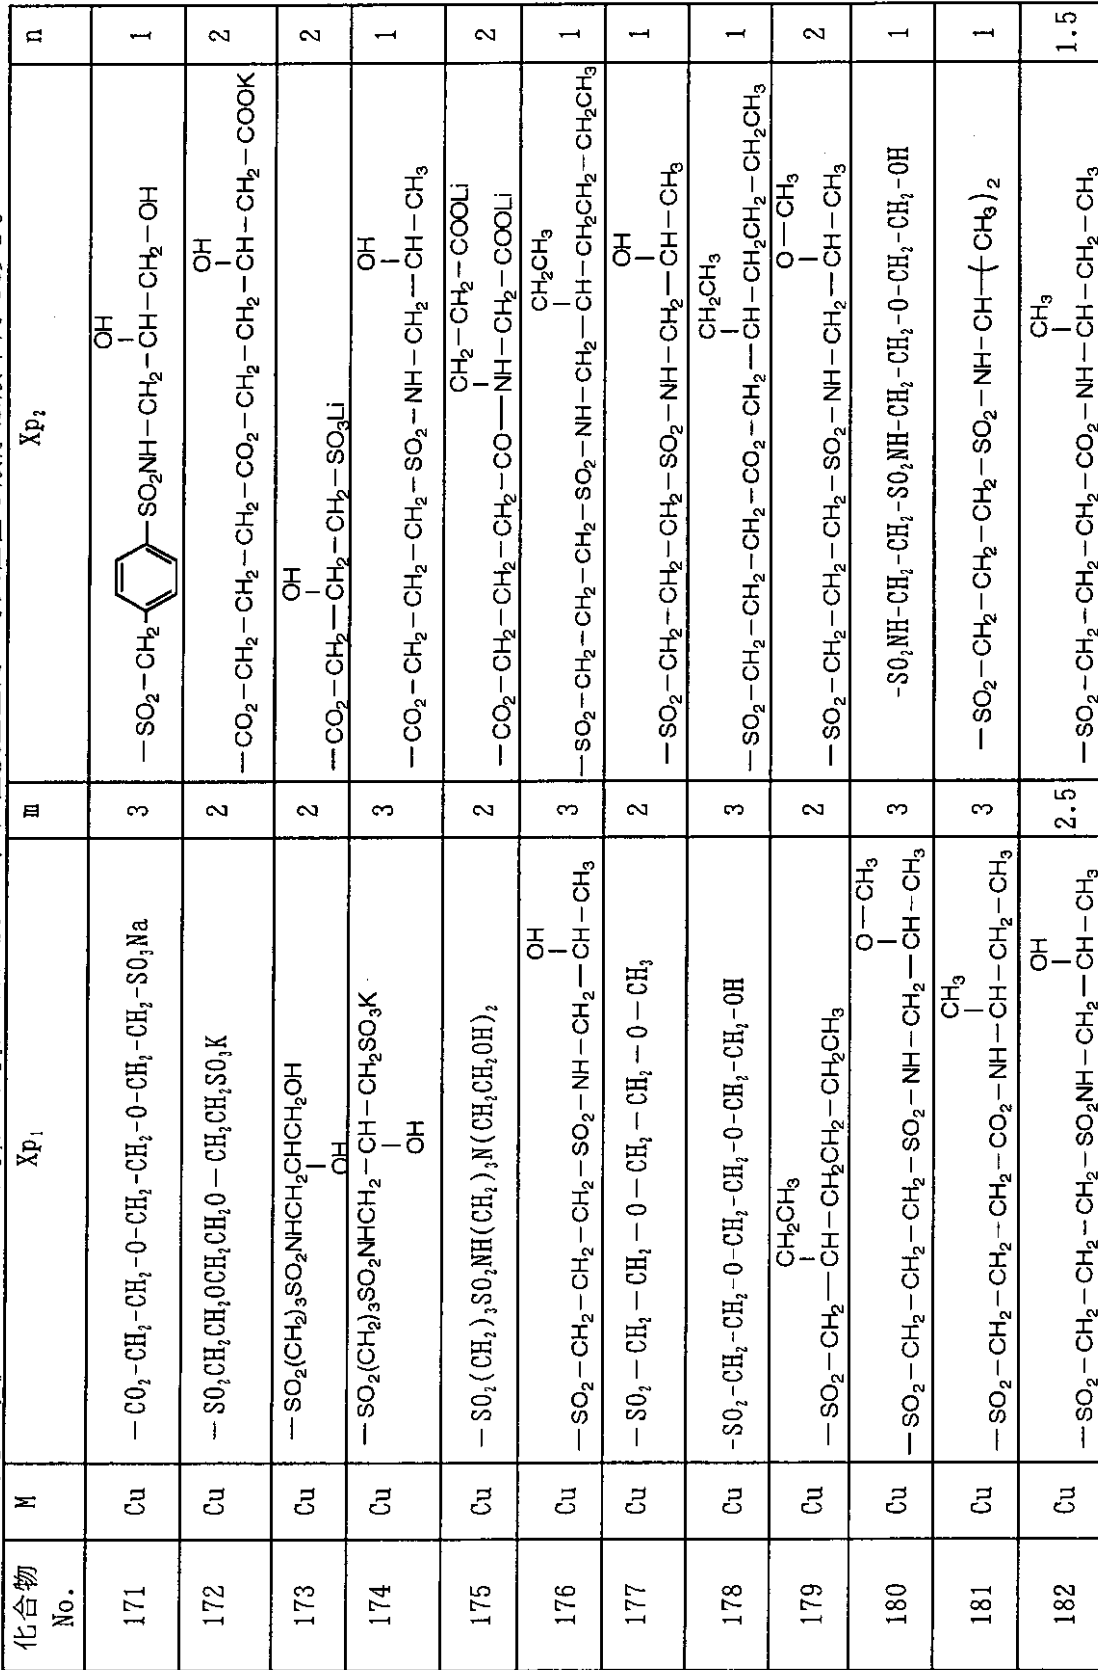 化合物 No. M Xp₁ m Xp₂ n
171 Cu —CO₂-CH₂-CH₂-O-CH₂-CH₂-O-CH₂-CH₂-SO₃Na 3 —SO₂-CH₂-⌬-SO₂NH-CH₂-CH(OH)-CH₂-OH 1
172 Cu —SO₂CH₂CH₂OCH₂CH₂O—CH₂CH₂SO₃K 2 —CO₂-CH₂-CH₂-CH₂-CO₂-CH₂-CH₂-CH₂-CH(OH)-CH₂-COOK 2
173 Cu —SO₂(CH₂)₃SO₂NHCH₂CH(OH)CH₂OH 2 —CO₂-CH₂-CH₂(OH)-CH₂-SO₃Li 2
174 Cu —SO₂(CH₂)₃SO₂NHCH₂-CH(OH)-CH₂SO₃K 3 —CO₂-CH₂-CH₂-CH₂-SO₂-NH-CH₂-CH(OH)-CH₃ 1
175 Cu —SO₂(CH₂)₃SO₂NH(CH₂)₃N(CH₂CH₂OH)₂ 2 —CO₂-CH₂-CH₂-CH₂-CO-NH(CH₂-CH₂-COOLi)-CH₂-CH₂-COOLi 2
176 Cu —SO₂-CH₂-CH₂-CH₂-SO₂-NH-CH₂-CH(OH)-CH₃ 3 —SO₂-CH₂-CH₂-CH₂-SO₂-NH-CH₂-CH(CH₂CH₃)-CH₂CH₂-CH₂CH₃ 1
177 Cu —SO₂—CH₂—CH₂—O—CH₂—CH₂—O—CH₃ 2 —SO₂-CH₂-CH₂-CH₂-SO₂-NH-CH₂-CH(OH)-CH₃ 1
178 Cu -SO₂-CH₂-CH₂-O-CH₂-CH₂-O-CH₂-CH₂-OH 3 —SO₂-CH₂-CH₂-CH₂-CO₂-CH₂-CH(CH₂CH₃)-CH₂CH₂-CH₂CH₃ 1
179 Cu —SO₂-CH₂-CH(CH₂CH₃)-CH₂CH₂-CH₂CH₃ 2 —SO₂-CH₂-CH₂-CH₂-SO₂-NH-CH₂-CH(O-CH₃)-CH₃ 2
180 Cu —SO₂-CH₂-CH₂-CH₂-SO₂-NH-CH₂-CH(O-CH₃)-CH₃ 3 -SO₂NH-CH₂-CH₂-SO₂NH-CH₂-CH₂-O-CH₂-CH₂-OH 1
181 Cu —SO₂-CH₂-CH₂-CH₂-CO₂-NH-CH(CH₃)-CH₂-CH₃ 3 —SO₂-CH₂-CH₂-CH₂-SO₂-NH-CH-(CH₃)₂ 1
182 Cu —SO₂-CH₂-CH₂-CH₂-SO₂NH-CH₂-CH(OH)-CH₃ 2.5 —SO₂-CH₂-CH₂-CH₂-CO₂-NH-CH(CH₃)-CH₂-CH₃ 1.5